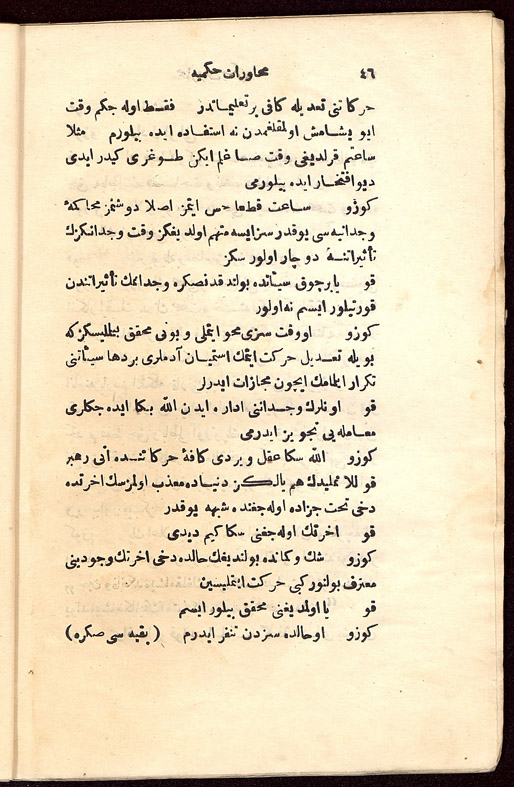 ٤٦ محاورات حكميه
حركاتنى تعديله كافى بر تعليماتدر فقط اوله جكم وقت
ايو يشامش اولمقلغمدن نه استفاده ايده بيلورم مثلا
ساعتم قرلديغى وقت صاغلم ايكن طوغرى كيدر ايدى
ديو افتخار ايده بيلورمى
كوزو ساعت قطعا حس ايتمز اصلا دوشنمز محاكمهٔ
وجدانيه سى يوقدر سز ايسه متهم اولديغكز وقت وجدانكزك
تأثيراتنه دوچار اولورسكز
قو يا برچوق سيئاتده بولندقدنصكره وجدانمك تأثيراتندن
قورتيلور ايسم نه اولور
كوزو او وقت سزى محو ايتملى و بونى محقق بتلليسكز كه
بويله تعديل حركت ايتمك استميان آدملرى بردها سيئاتنى
تكرار ايتمامك ايچون مجازات ايدرلر
قو اونلرك وجداننى اداره ايدن الله بكا ايده جكلرى
معامله يى تجويز ايدرمى
كوزو الله سكا عقل ويردى كافهٔ حركاتكده آنى رهبر
قوللانمليدك هم يالكز دنياده معذب اولمزسك اخرتده
دخى تحت جزاده اوله جغنده شبهه يوقدر
قو اخرتك اوله جغنى سكا كيم ديدى
كوزو شك وكمانده بولنديغك حالده دخى اخرتك وجودينى
معترف بولنور كبى حركت ايتمليسين
قو يا اولمديغنى محقق بيلور ايسم
كوزو اوحالده سزدن تنفر ايدرم (بقيه سى صكره)